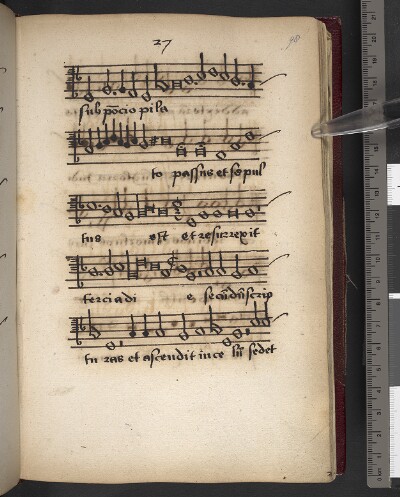 27
sub põcio pila
to passus et sepul
tus est et resurrexit
tercia di e secũdũ scrip
tu ras et ascendit in ce lũ sedet